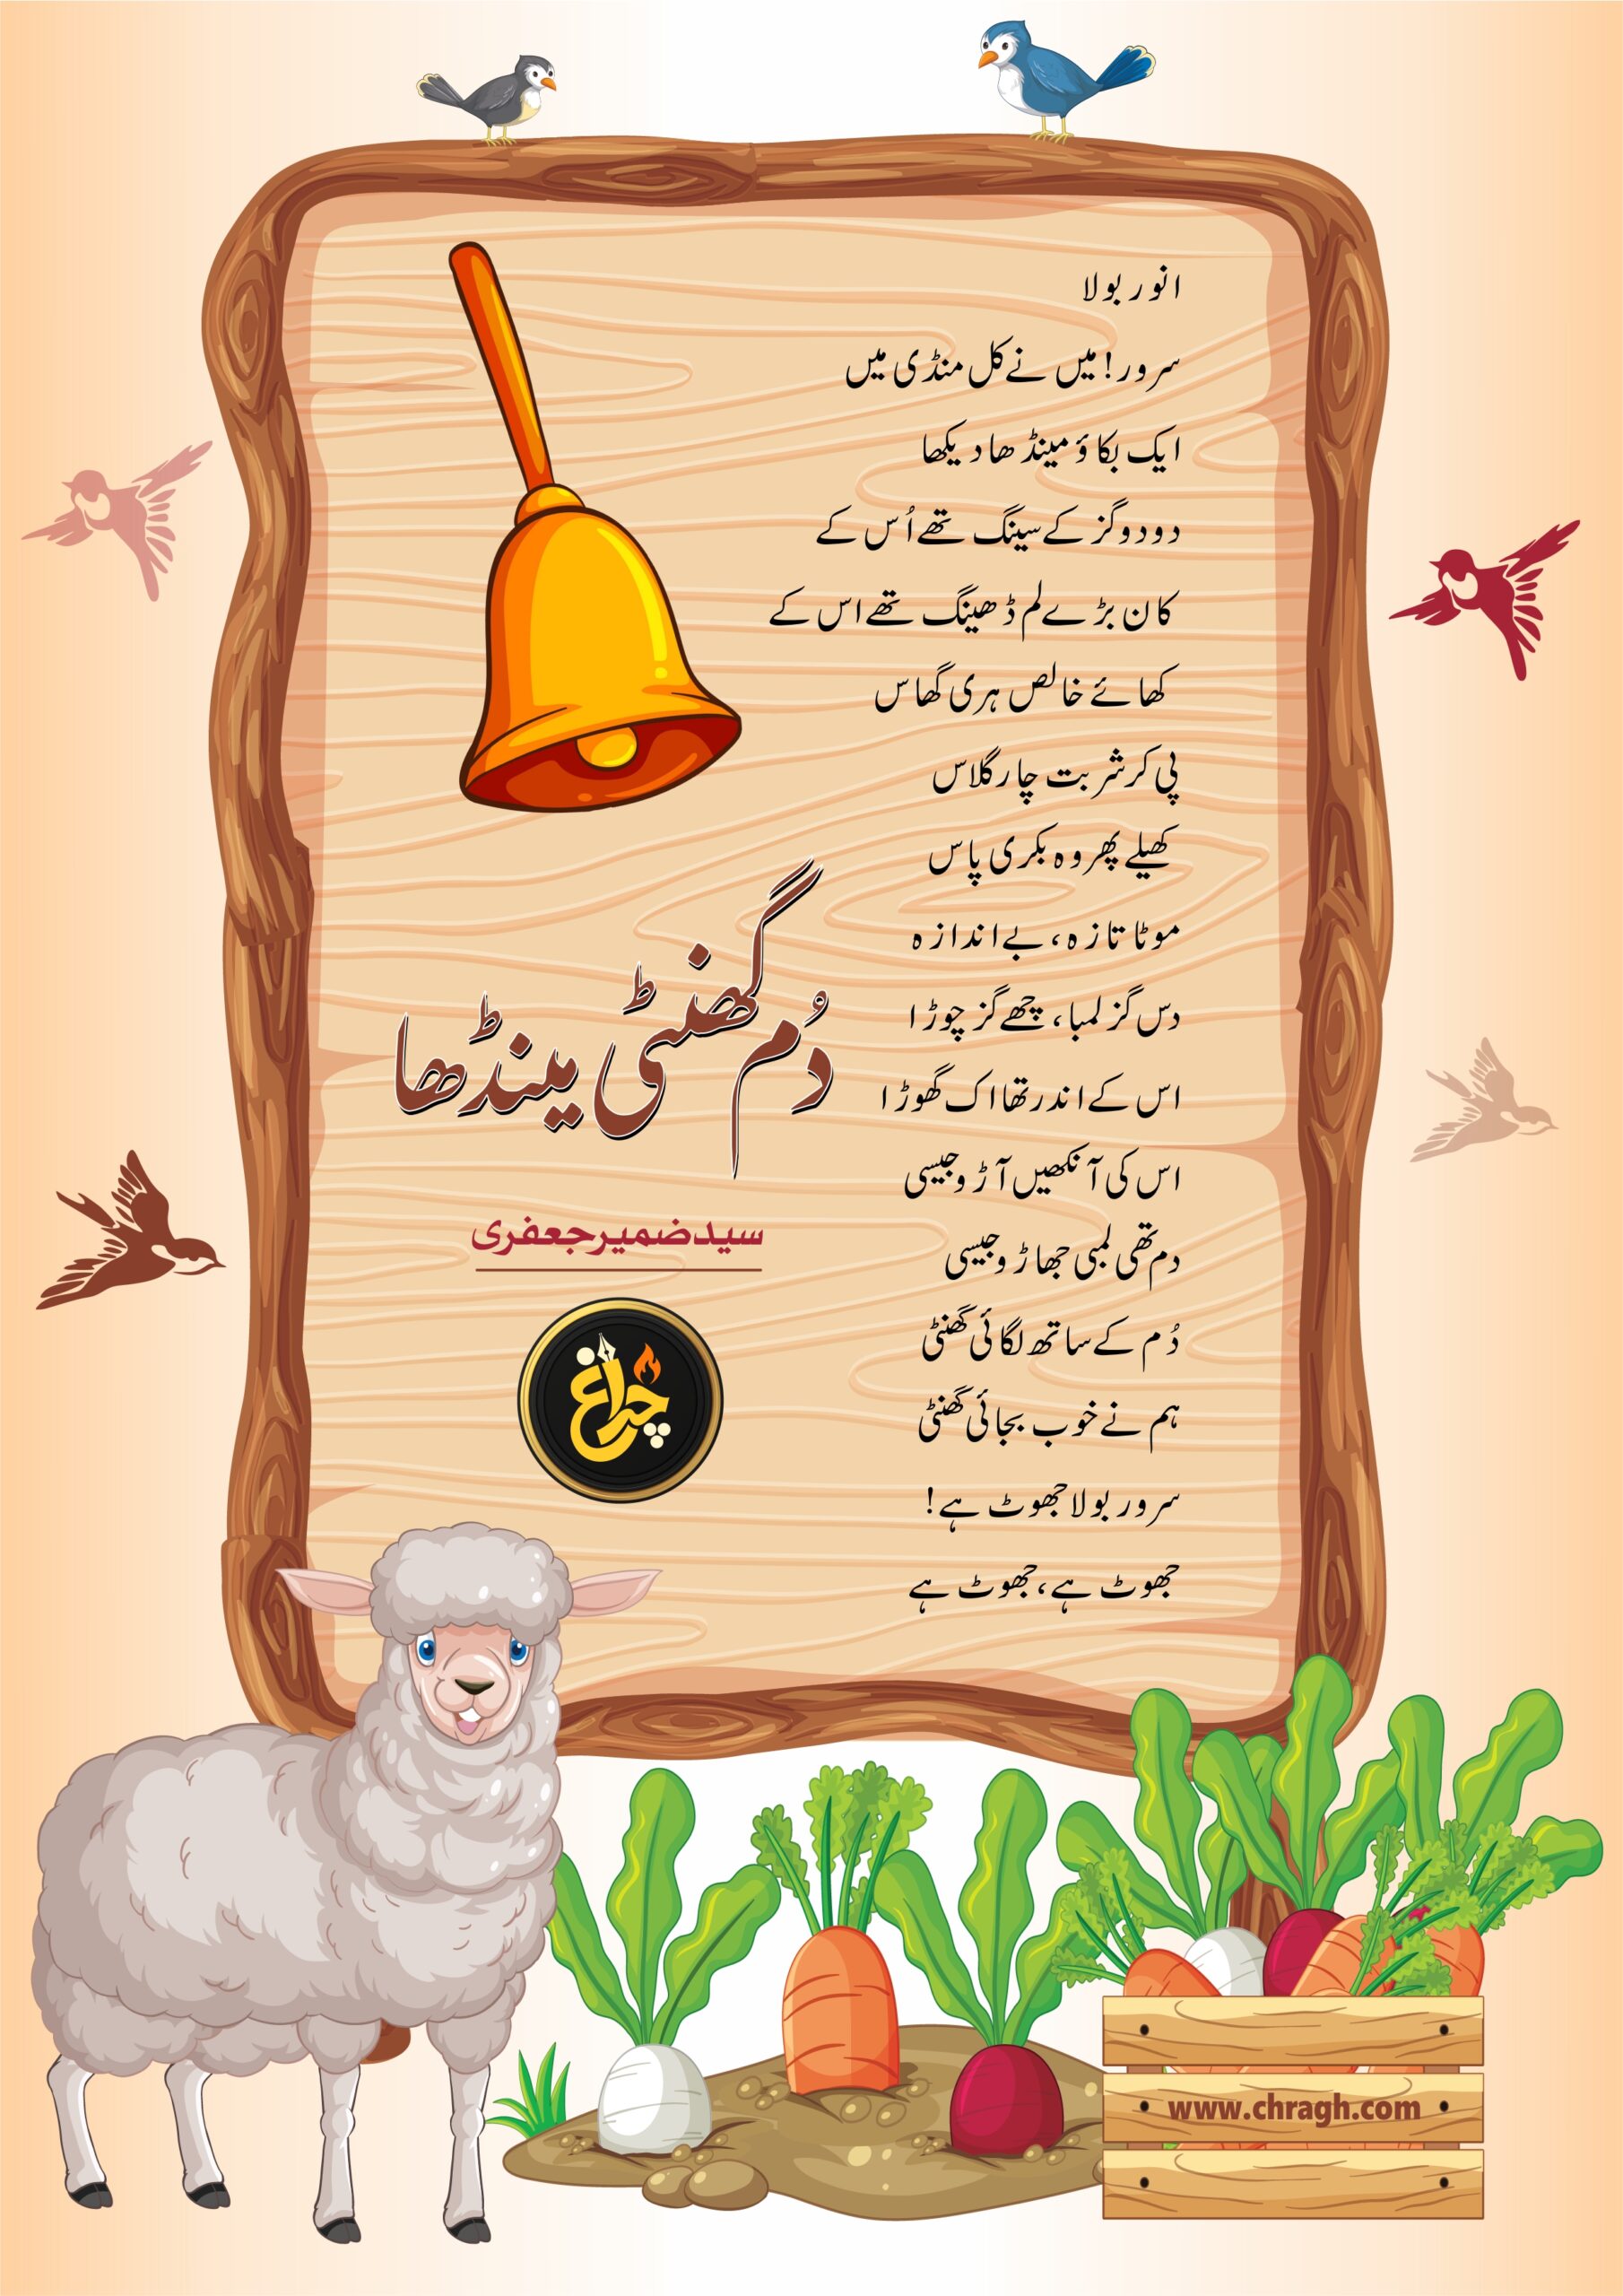 انور بولا
سرور! میں نے کل منڈی میں
ایک بکاؤ مینڈھا دیکھا
دو دو گز کے سینگ تھے اُس کے
کان بڑے لم ڈھینگ تھے اس کے
کھائے خالص ہری گھاس
پی کر شربت چار گلاس
کھیلے پھر وہ بکری پاس
موٹا تازہ، بے اندازہ
دس گز لمبا، چھے گز چوڑا
اس کے اندر تھا اک گھوڑا
اس کی آنکھیں آڑو جیسی
دم تھی لمبی جھاڑو جیسی
دُم کے ساتھ لگائی گھنٹی
ہم نے خوب بجائی گھنٹی
سرور بولا جھوٹ ہے!
جھوٹ ہے، جھوٹ ہے
دُم گھنٹی مینڈھا
سید ضمیر جعفری
چراغ
www.chragh.com